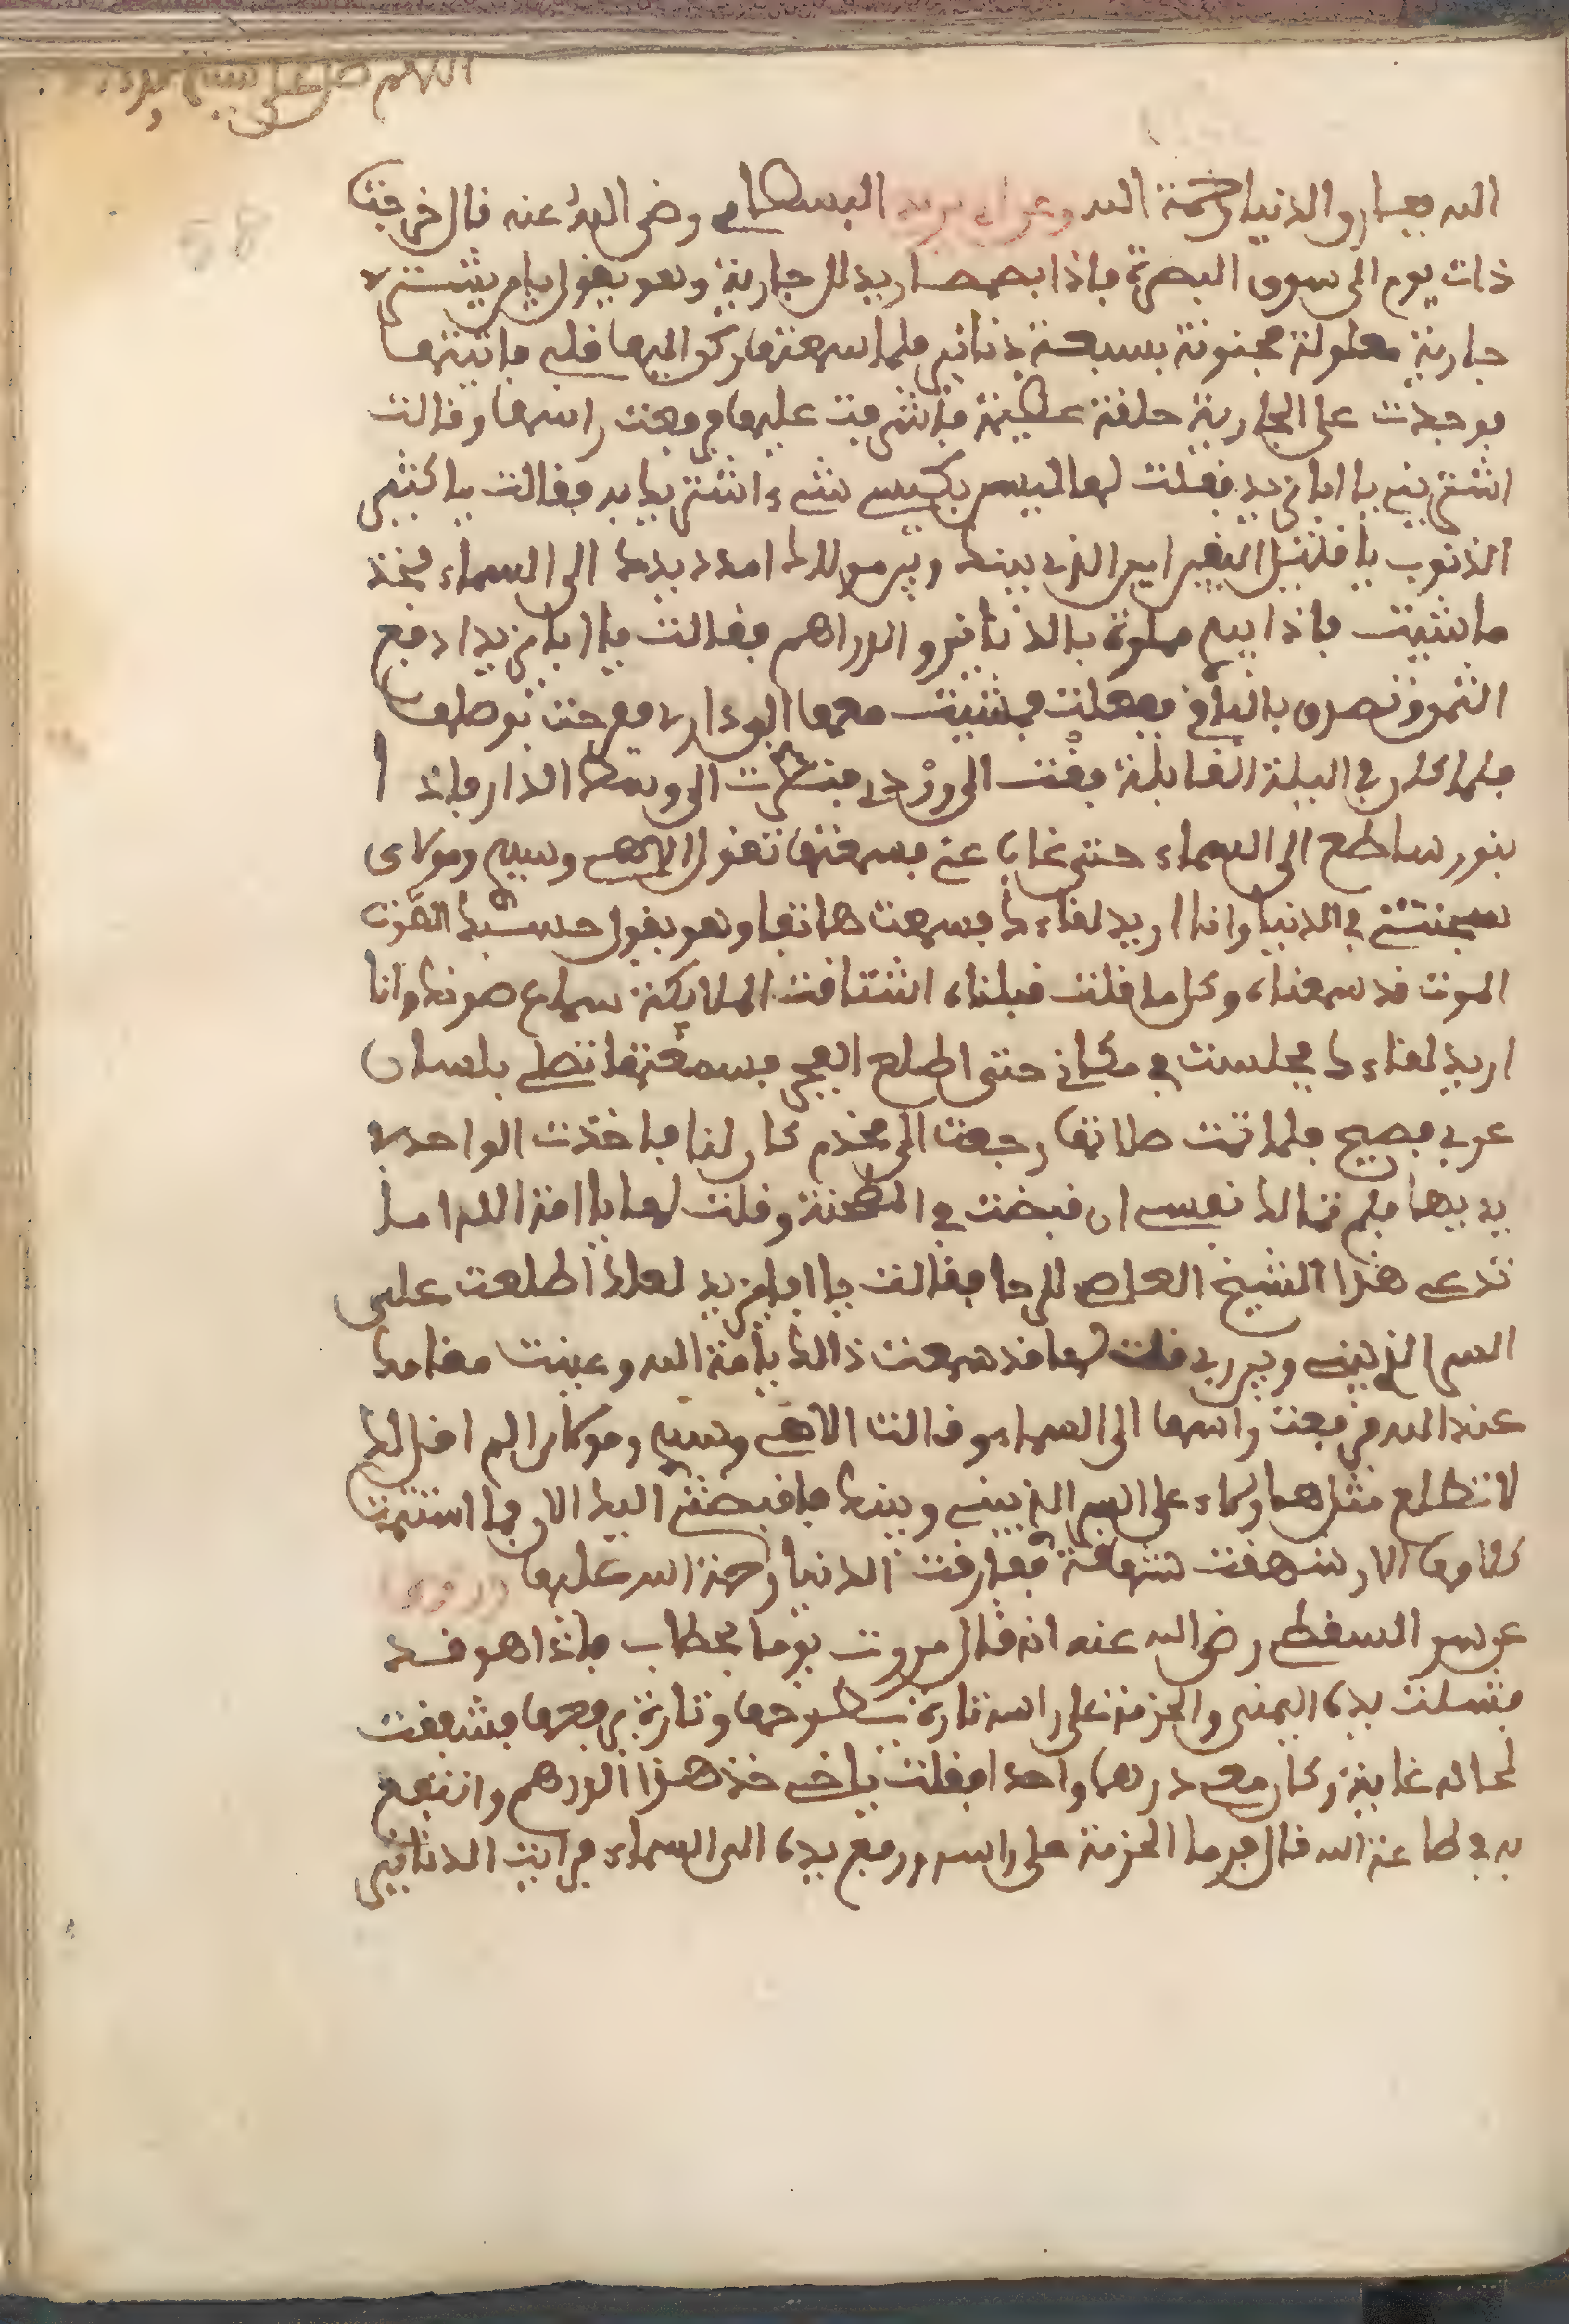 اللهم صل على
58
الله ففارق الدنيا رحمة الله وعن ابي يزيد البسطامي رضي الله عنه قال خرجت
ذات يوم الى سوق البصرة فاذا بصحصا ريدلل جارية وهو يقول يامن يشتر
جارية معلولة مجنونة بسبعة دنانير فلما سمعتها ركن اليها قلبي فاتيتها
فوجدت على الجارية حلقة عظيمة فاشرفت عليها فرفعت راسها وقالت
اشترني يا ابا يزيد فقلت لها ليس بكيسي شيء اشتريك به فقالت يا كثير
الذنوب يا قليل اليقين اين الذي بينك وبين مولاك امدد يدك الى السماء فخذ
ما شيت فاذا بيدي مملوة بالدنانير والدراهم فقالت يا ابا يزيد ادفع
الثمن وتصدق بالباقي ففعلت فمشيت معها الى داري ففرحت بوصلها
فلما كان في اليلة القابلة فقمت الى وردي فنظرت الى وسط الدار فاذا
بنور ساطع الى السماء حتى غاب عني فسمعتها تقول الاهي وسيدي ومولاي
سجنتني في الدنيا وانا اريد لقاءك فسمعت هاتفا وهو يقول حسبك
الصوت قد سمعناه وكل ما قلت قبلناه اشتاقت الملايكة سماع صوتك وانا
اريد لقاءك فجلست في مكاني حتى اطلع الفجر فسمعتها تصلي بلسان
عربي فصيح فلما تمت صلاتها رجعت الى مخدم كان لنا فاخذت الواحد
يديها فلم تمالك نفسي ان قبضت في المطحنة وقلت لها يا امة الله اما
تدعي هذا الشيخ العاصي للرحا فقالت يا ابا يزيد لعلك اطلعت على
السر الذي بيني وبين ربي قلت لها قد سمعت ذالك يا امة الله وعينت مقامك
عند الله فرفعت راسها الى السماء وقالت الاهي وسيدي ومولاي الم اقل لك
لا تطلع مثل هاولاء على السر الذي بيني وبينك فاقبضني اليك الان فما استتمت
كلامها الا وشهقت شهقة ففارقت الدنيا رحمة الله عليها وروي
عن سر السقطي رضي الله عنه انه قال مررت يوما بحطاب فاذا هو قد
فشلت يده اليمنى والحزمة على راسه تارة يطرحها وتارة يرفعها فشفقت
لحاله غاية وكان معي درهما واحدا فقلت ياخي خذ هذا الدرهم وانتفع
به في طاعة الله قال فرما الحزمة على راسه ورفع يده الى السماء فرايت الدنانير